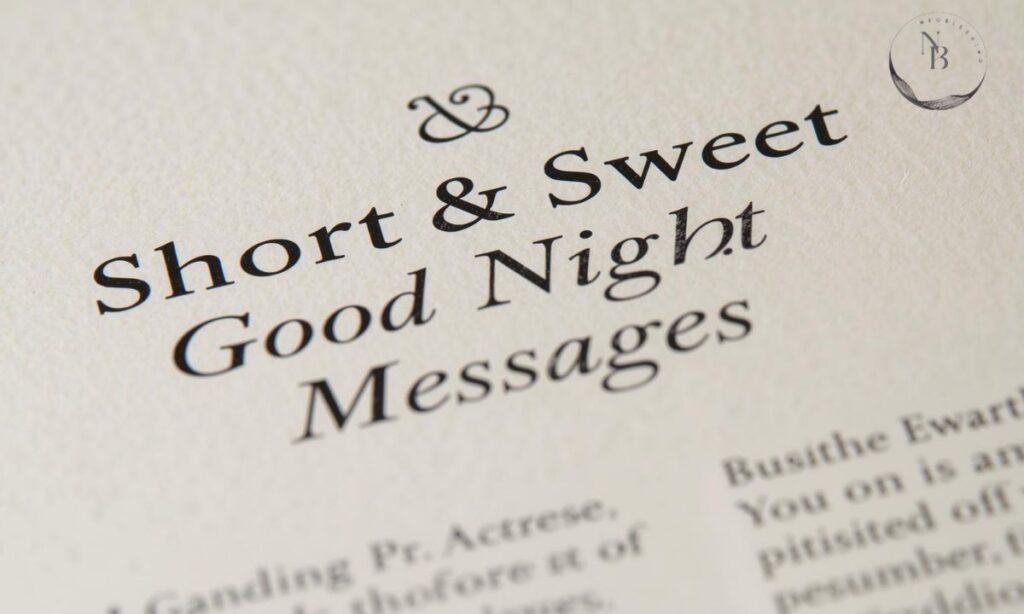 NEOBLESSING
NB
&
Short & Sweet
Good Night
Messages
Ganding Pr. Actrese,
thofore st of
Busithe Ewart
You on is an
pitisited off
pesumber,